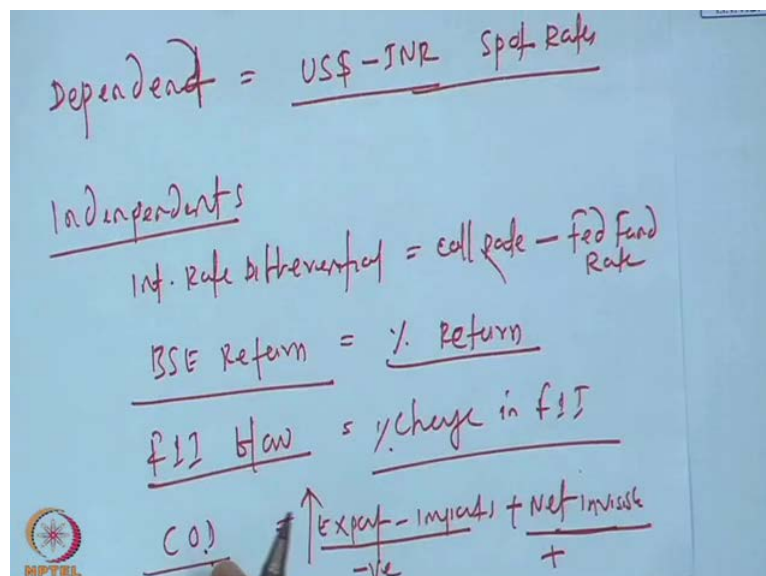 Dependent = US$ - INR Spot Rates
Independents
Int. Rate Differential = Call Rate - Fed Fund Rate
BSE Return = % Return
FII flow = % Change in FII
= ↑ Export - Imports + Net invisible
-ve +
NPTEL